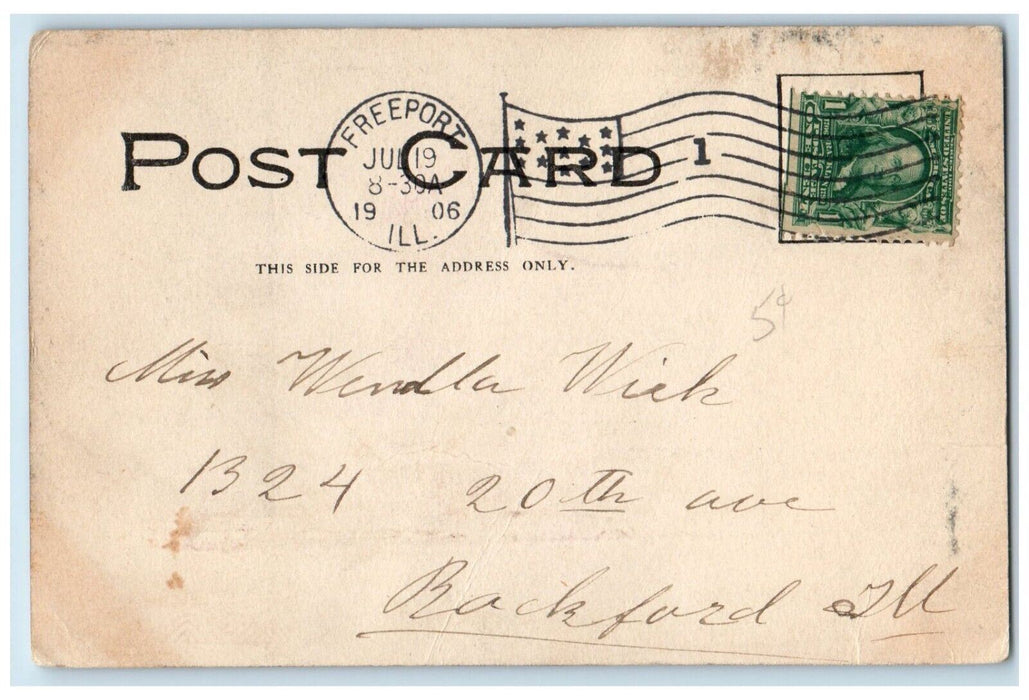 POST CARD
FREEPORT
JUL 19
8-30A
19 06
ILL.
1
THIS SIDE FOR THE ADDRESS ONLY.
5
Miss Wendla Wick
1324 20th ave
Rockford Ill